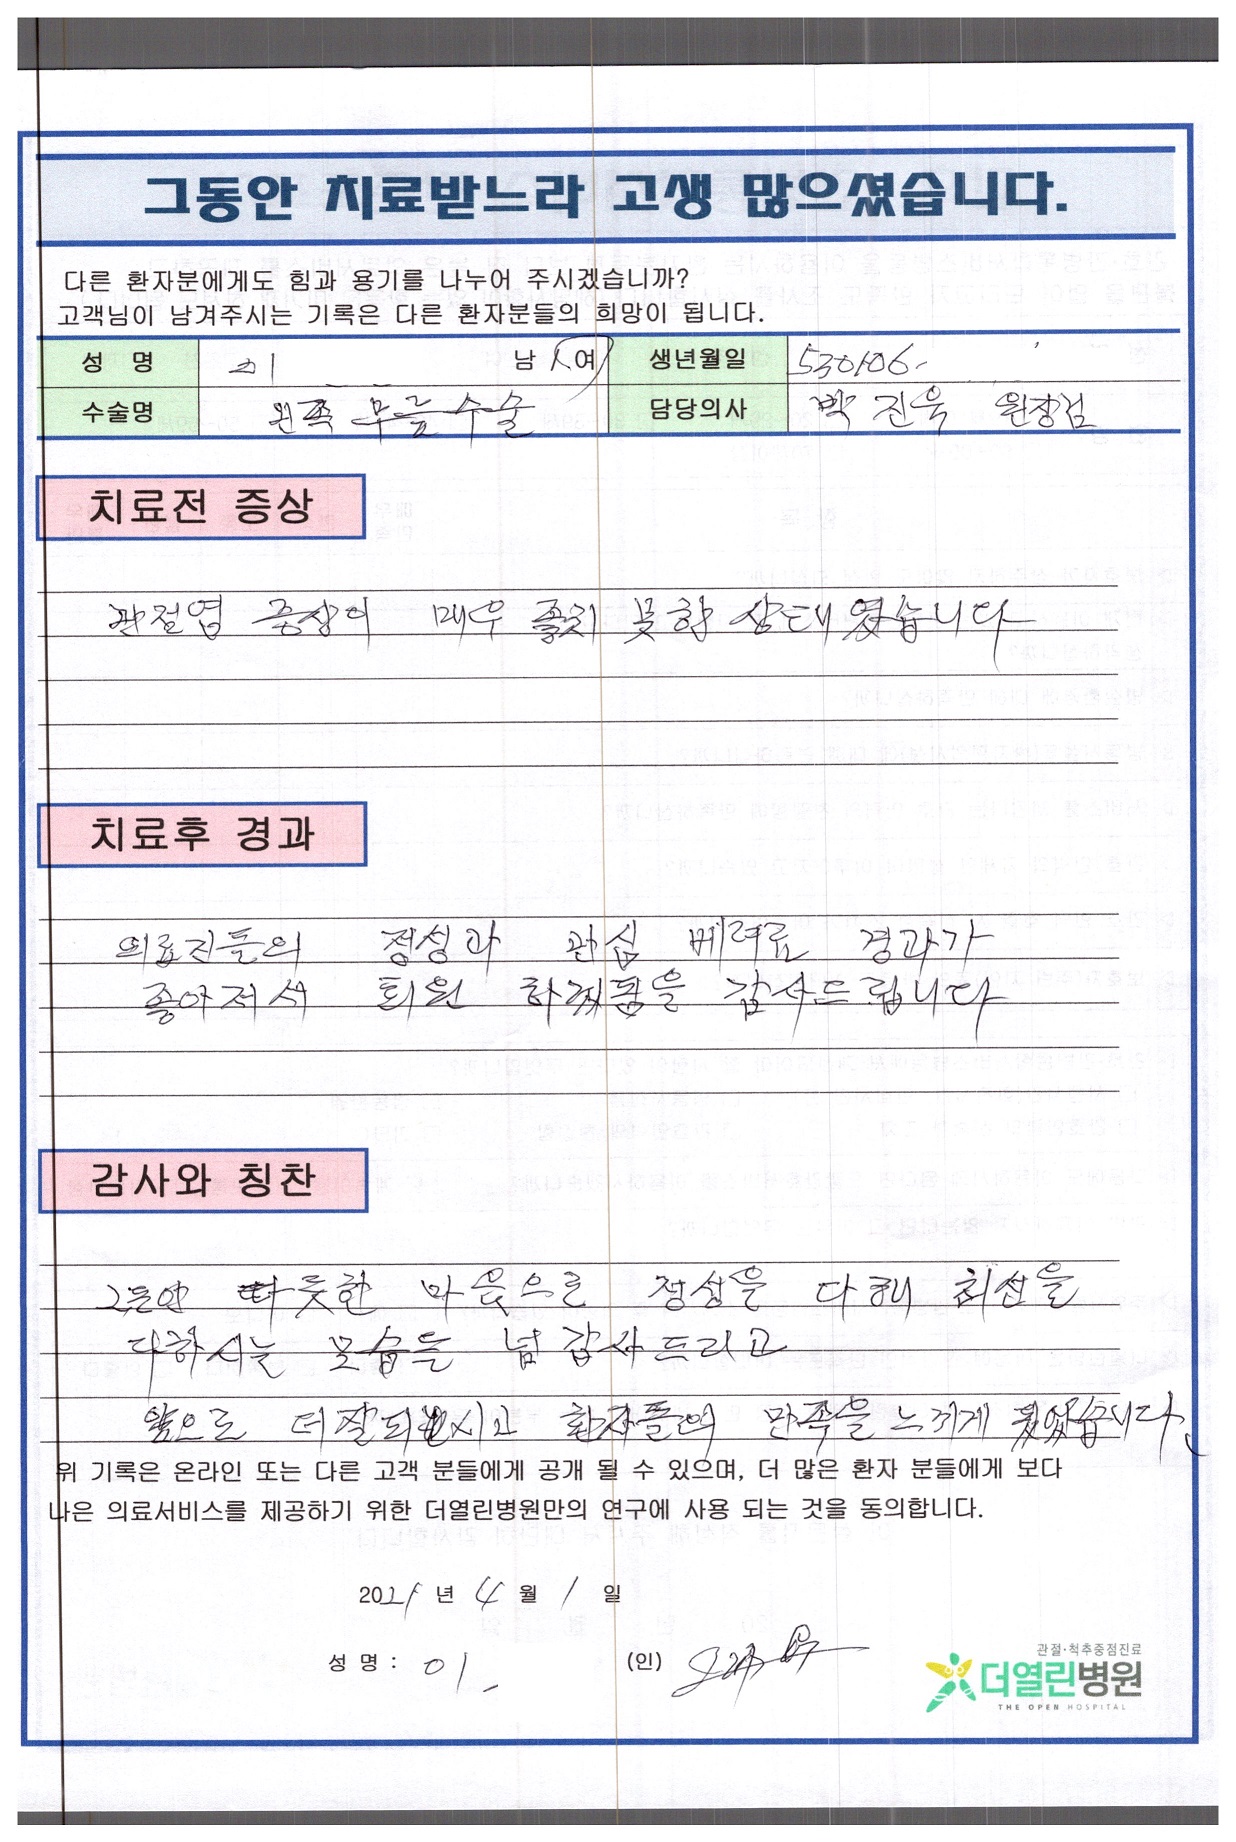 그동안 치료받느라 고생 많으셨습니다.
다른 환자분에게도 힘과 용기를 나누어 주시겠습니까?
고객님이 남겨주시는 기록은 다른 환자분들의 희망이 됩니다.
성 명 이 남 여 생년월일 530106.
수술명 왼쪽 무릎 수술 담당의사 박진욱 원장검
치료전 증상
관절염 증상이 매우 좋치 못한 상태였습니다
치료후 경과
의료진들의 정성과 관심 베려료 경과가
좋아저서 퇴원 하겠됨을 감사드립니다
감사와 칭찬
그동안 따듯한 마음으로 정성을 다해 최선을
다하시는 모습들 넘 감사드리고
앞으로 더 잘되 시고 환자들의 만족을 느끼게
위 기록은 온라인 또는 다른 고객 분들에게 공개 될 수 있으며, 더 많은 환자 분들에게 보다
나은 의료서비스를 제공하기 위한 더열린병원만의 연구에 사용 되는 것을 동의합니다.
2021 년 4 월 1 일
성 명 : 이 (인)
관절·척추중점진료
더열린병원
THE OPEN HOSPITAL